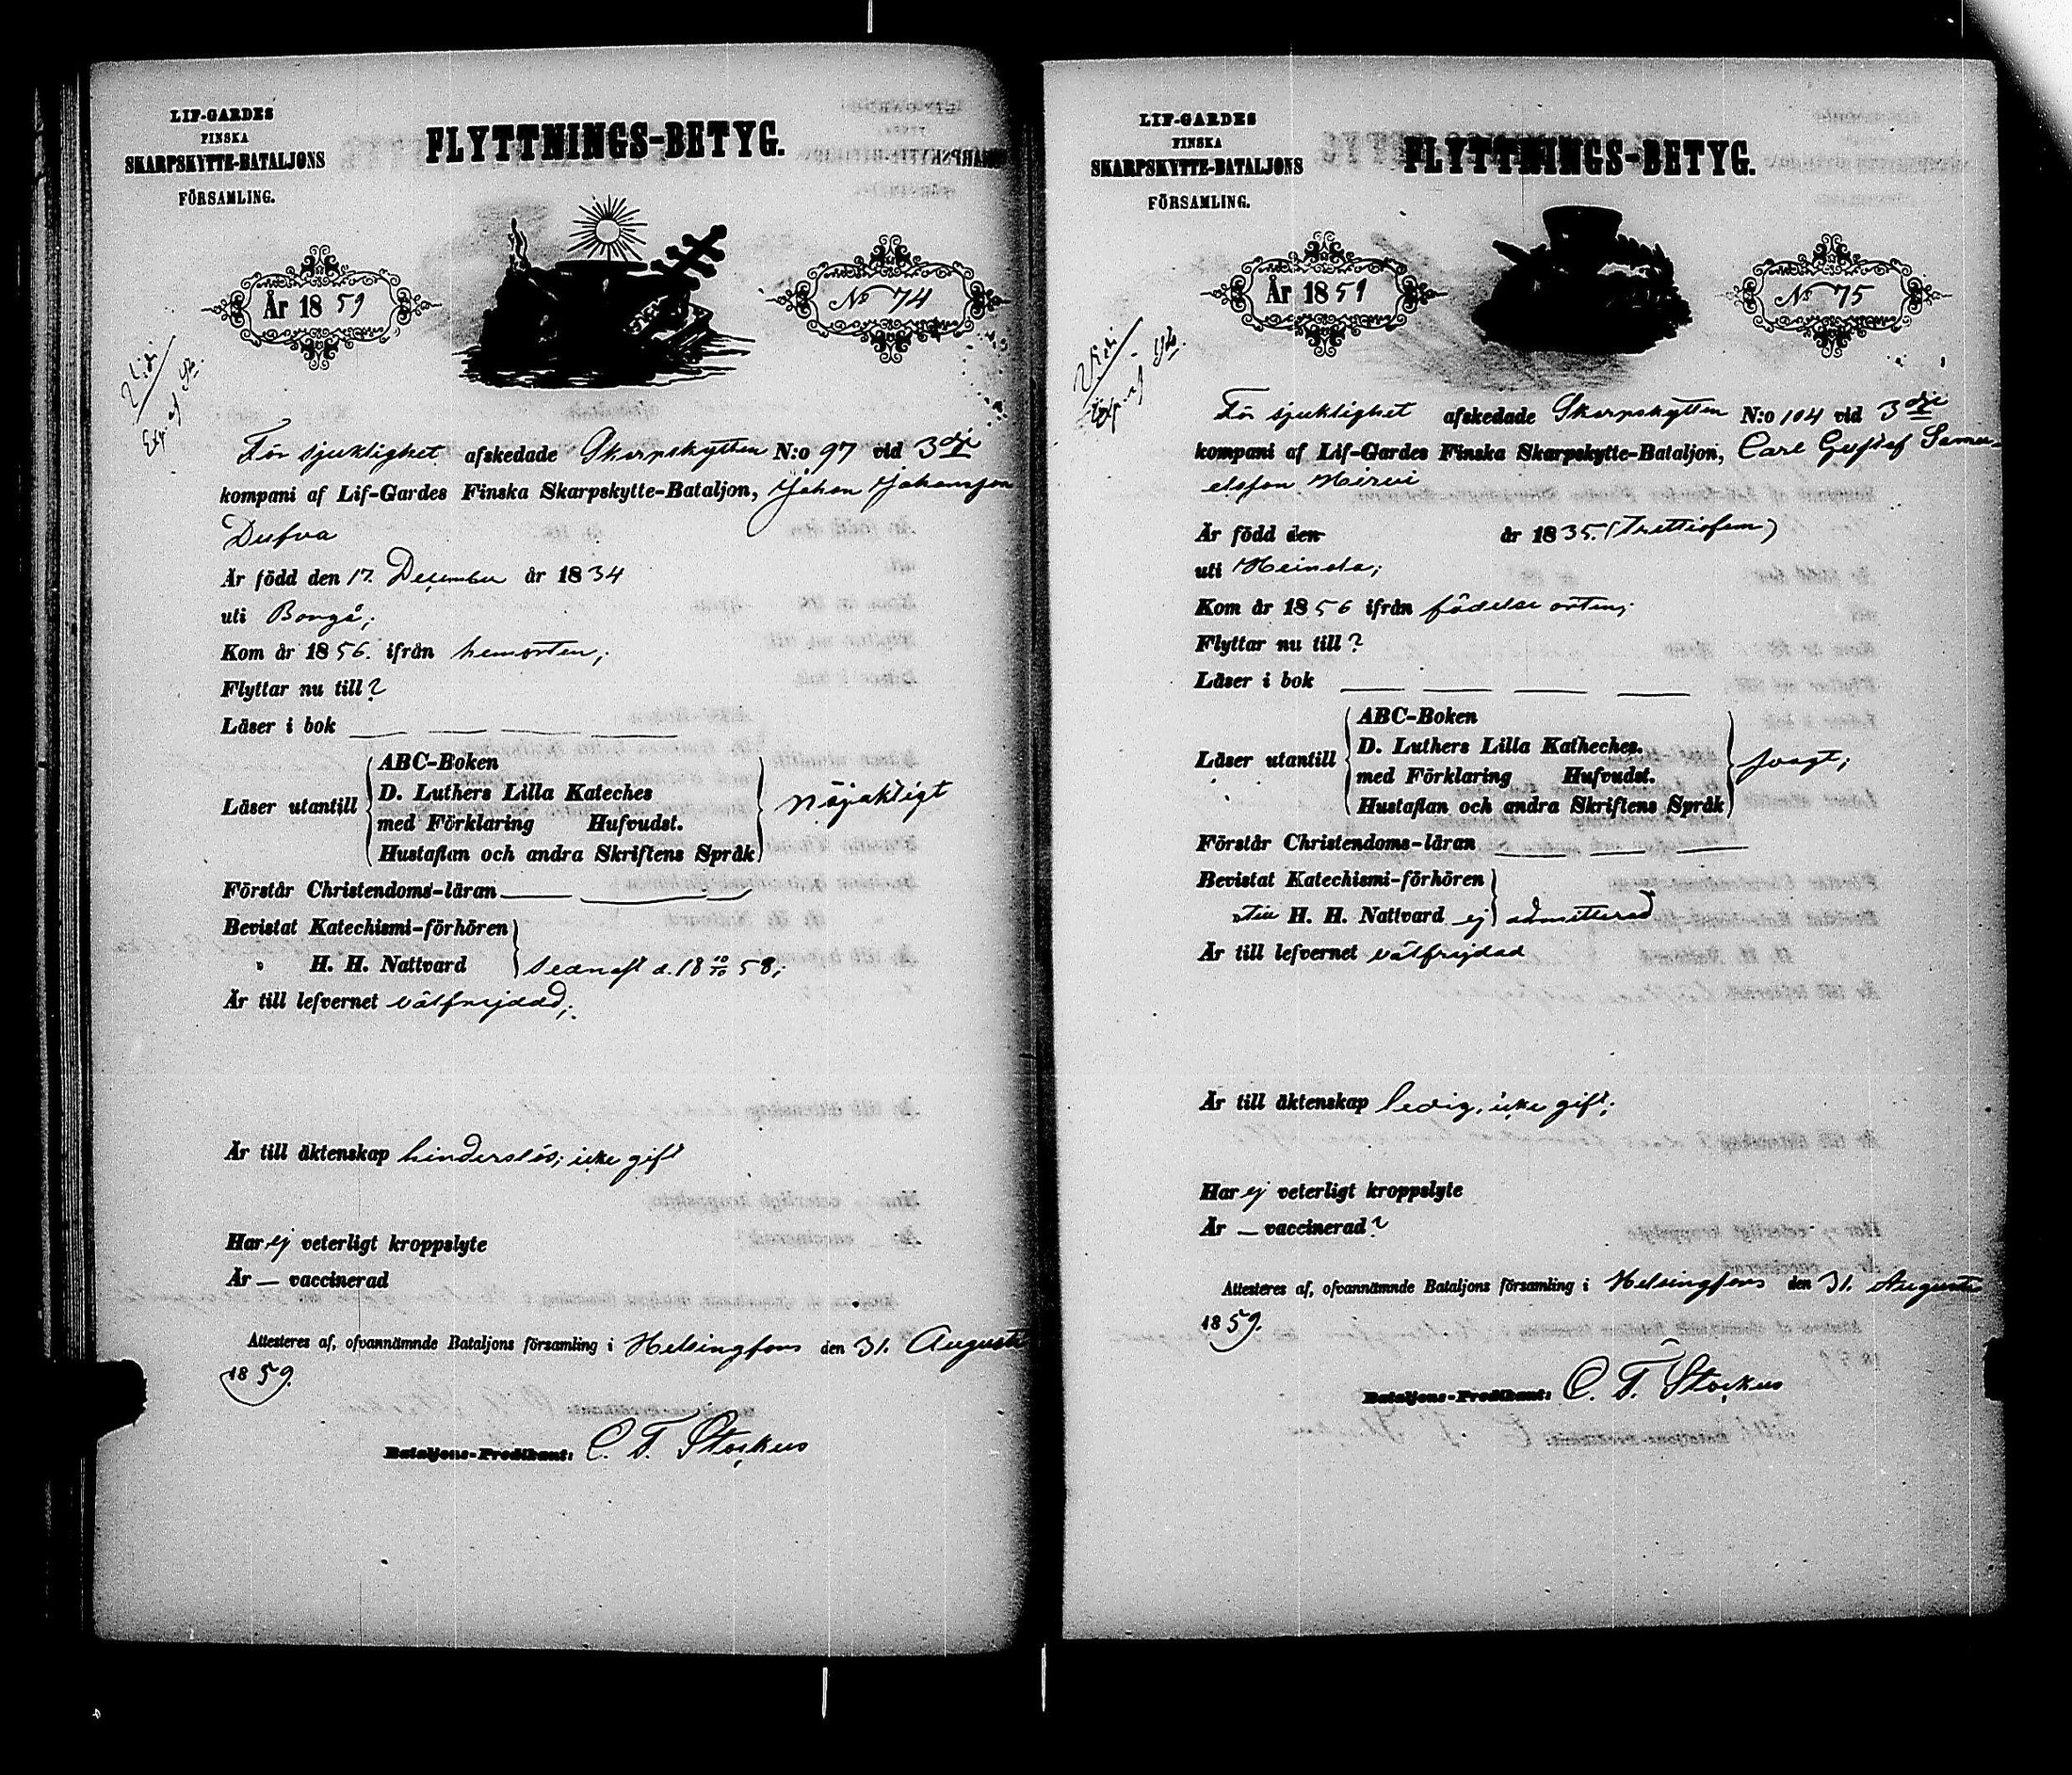 LIF-GARDES
FINSKA
SKARPSKYTTE-BATALJONS
FÖRSAMLING.
FLYTTNINGS-BETYG.
År 1859
No 74
Vidi
Exp. af
För sjuklighet afskedade Skarpskytten N:o 97 vid 3dje
kompani af Lif-Gardes Finska Skarpskytte-Bataljon, Johan Johansson
Dufva
Är född den 17. December år 1834
uti Borgå;
Kom år 1856. ifrån hemorten;
Flyttar nu till?
Läser i bok
Läser utantill
ABC-Boken
D. Luthers Lilla Kateches
med Förklaring Hufvudst.
Hustaflan och andra Skriftens Språk
nöjaktigt
Förstår Christendoms-läran
Bevistat Katechismi-förhören
" H. H. Nattvard sednast d. 18 10/10 58;
Är till lefvernet välfrejdad;
Är till äktenskap hinderslös; icke gift
Har ej veterligt kroppslyte
Är — vaccinerad
Attesteres af, ofvannämnde Bataljons församling i Helsingfors den 31. Augusti
1859.
Bataljons-Predikant: C. F. Stockus
LIF-GARDES
FINSKA
SKARPSKYTTE-BATALJONS
FÖRSAMLING.
FLYTTNINGS-BETYG.
År 1859
No 75
Vidi
Exp. af
För sjuklighet afskedade Skarpskytten N:o 104 vid 3dje
kompani af Lif-Gardes Finska Skarpskytte-Bataljon, Carl Gustaf Samu-
elsson Hirvi
Är född den år 1835. (trettiofem)
uti Heinola;
Kom år 1856 ifrån födelse orten;
Flyttar nu till?
Läser i bok
Läser utantill
ABC-Boken
D. Luthers Lilla Katheches.
med Förklaring Hufvudst.
Hustaflan och andra Skriftens Språk
svagt;
Förstår Christendoms-läran
Bevistat Katechismi-förhören
" Till H. H. Nattvard ej admitterad
Är till lefvernet välfrejdad
Är till äktenskap ledig, icke gift;
Har ej veterligt kroppslyte
Är — vaccinerad?
Attesteres af, ofvannämnde Bataljons församling i Helsingfors den 31. Augusti
1859.
Bataljons-Predikant: C. F. Stockus